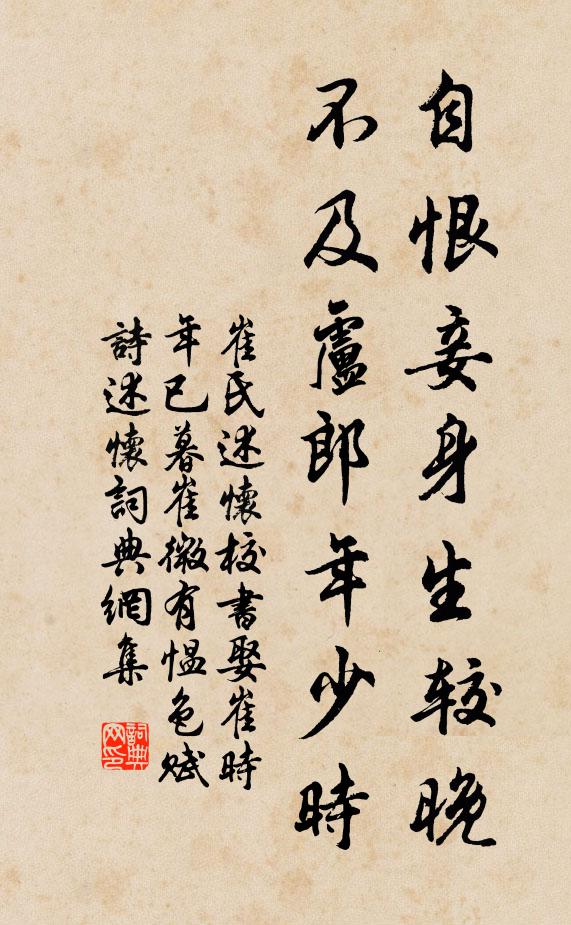 自恨妾身生较晚
不及盧郎年少時
崔氏述懷校書娶崔時
年已暮崔微有愠色賦
詩述懷詞典網集
詞典网印